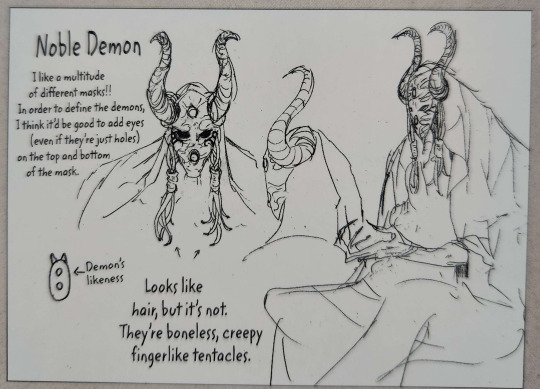 Noble Demon
I like a multitude
of different masks!!
In order to define the demons,
I think it'd be good to add eyes
(even if they're just holes)
on the top and bottom
of the mask.
Demon's
likeness
Looks like
hair, but it's not.
They're boneless, creepy
fingerlike tentacles.